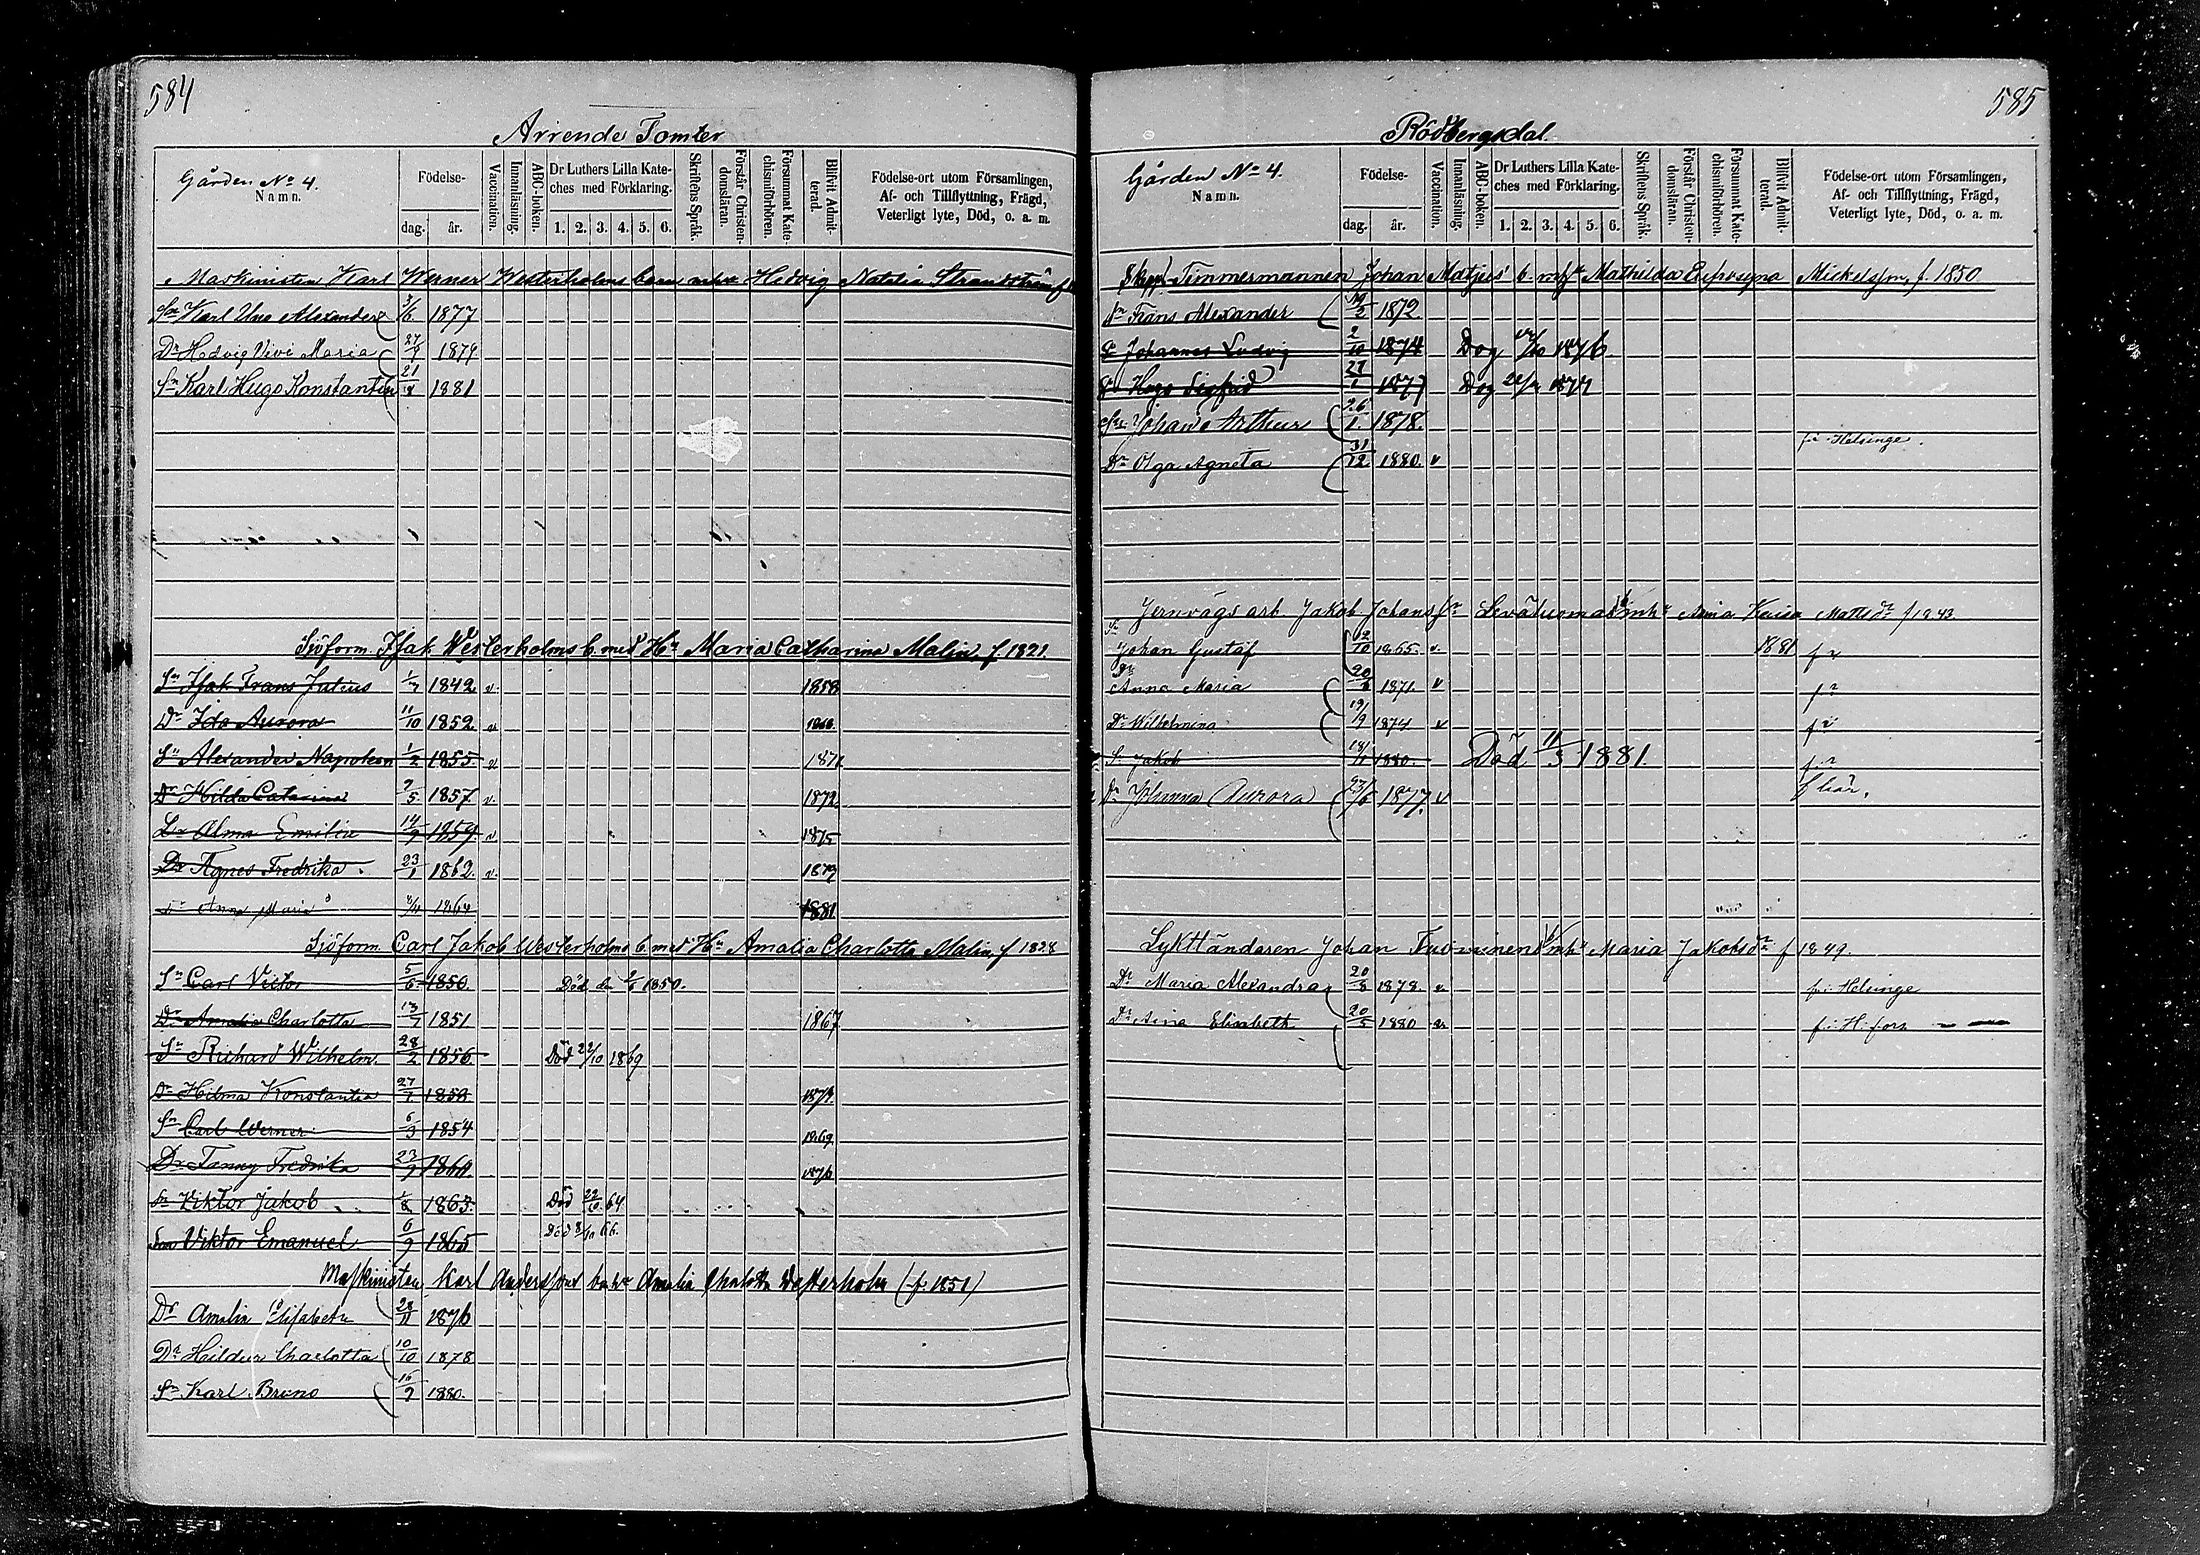 584
Arrende Tomter
Gården No 4.
Namn.
Födelse-
dag. år.
Vaccination.
Innanläsning.
ABC-boken.
Dr Luthers Lilla Kate-
ches med Förklaring.
1. 2. 3. 4. 5. 6.
Skriftens Språk.
Förstår Christen-
domsläran.
Försummat Kate-
chismiförhören.
Blifvit Admit-
terad.
Födelse-ort utom Församlingen,
Af- och Tillflyttning, Frägd,
Veterligt lyte, Död, o. a. m.
Maskinisten Karl Werner Westerholms barn Hedvig Natalia Strandström
Sn Karl Uno Alexander 3/6 1877
Dr Hedvig Vivi Maria 27/9 1879
Sn Karl Hugo Konstantin 1881
Sjöform. Isak Westerholms b. med Hu Maria Catharina Malin, f. 1821.
Sn Isak Frans Julius 1842 v. 1858
Dr Ida Aurora 11/10 1852 v
Sn Alexander Napoleon 1/2 1855 v 1871
Dr Hilda Catarina 9/5 1857 v. 1872
Dr Alma Emilia 14/9 1859 v 1875
Dr Agnes Fredrika 23/1 1862 v. 1879
Dr Anna Maria 1864 1881
Sjöform Carl Jakob Westerholms b. med Hu Amalia Charlotta Malin, f 1828
Sn Carl Victor 5/6 1850 Död den 1850.
Dr Amalia Charlotta 13/7 1851 1867
Sn Richard Wilhelm 28/2 1856 Död 22/10 1869
Dr Hilma Konstantia 27/1 1859 1874
Sn Carl Werner 6/3 1854 1869
Dr Fanny Fredrika 23/9 1860 1876
Sn Viktor Jakob 1863 Död 22/10 64
Son Viktor Emanuel 6/9 1865 Död 8/10 66.
Maskinisten Karl Anderssons Amalia Charlotta Westerholm (f. 1851)
Dr Amalia Elisabeth 28/11 1876
Dr Hildur Charlotta 10/10 1878
Sn Karl Bruno 16/9 1880.
585
Rödbergsdal.
Gården No 4.
Namn.
Födelse-
dag. år.
Vaccination.
Innanläsning.
ABC-boken.
Dr Luthers Lilla Kate-
ches med Förklaring.
1. 2. 3. 4. 5. 6.
Skriftens Språk.
Förstår Christen-
domsläran.
Försummat Kate-
chismiförhören.
Blifvit Admit-
terad.
Födelse-ort utom Församlingen,
Af- och Tillflyttning, Frägd,
Veterligt lyte, Död, o. a. m.
Timmermannen Johan b. Mathilda Mickelsson, f. 1850.
Sn Frans Alexander 1872
Sn Johannes Ludvig 2/10 1874 Dog 1876
Sn Hugo Sigfrid 1877 Dog 1877
Johan Arthur 26/1 1878.
Dr Olga Agneta 31/12 1880. v f. i Helsinge.
Jernvägs arb. Jakob Johans Anna Kaisa Matts dr f 1843.
Sn Johan Gustaf 12/10 1865. v. 1881
Dr Anna Maria 1871. v
Dr Wilhelmina 19/9 1874 v
Sn Jakob 1880. Död 11/3 1881
Dr Johanna Aurora 23/6 1877. v f. här.
Lykttändaren Johan Tuominens Maria Jakobs dr f 1849.
Dr Maria Alexandra 20/8 1878. v f. i Helsinge
Dr Aina Elisabeth 20/5 1880 f. i H:fors